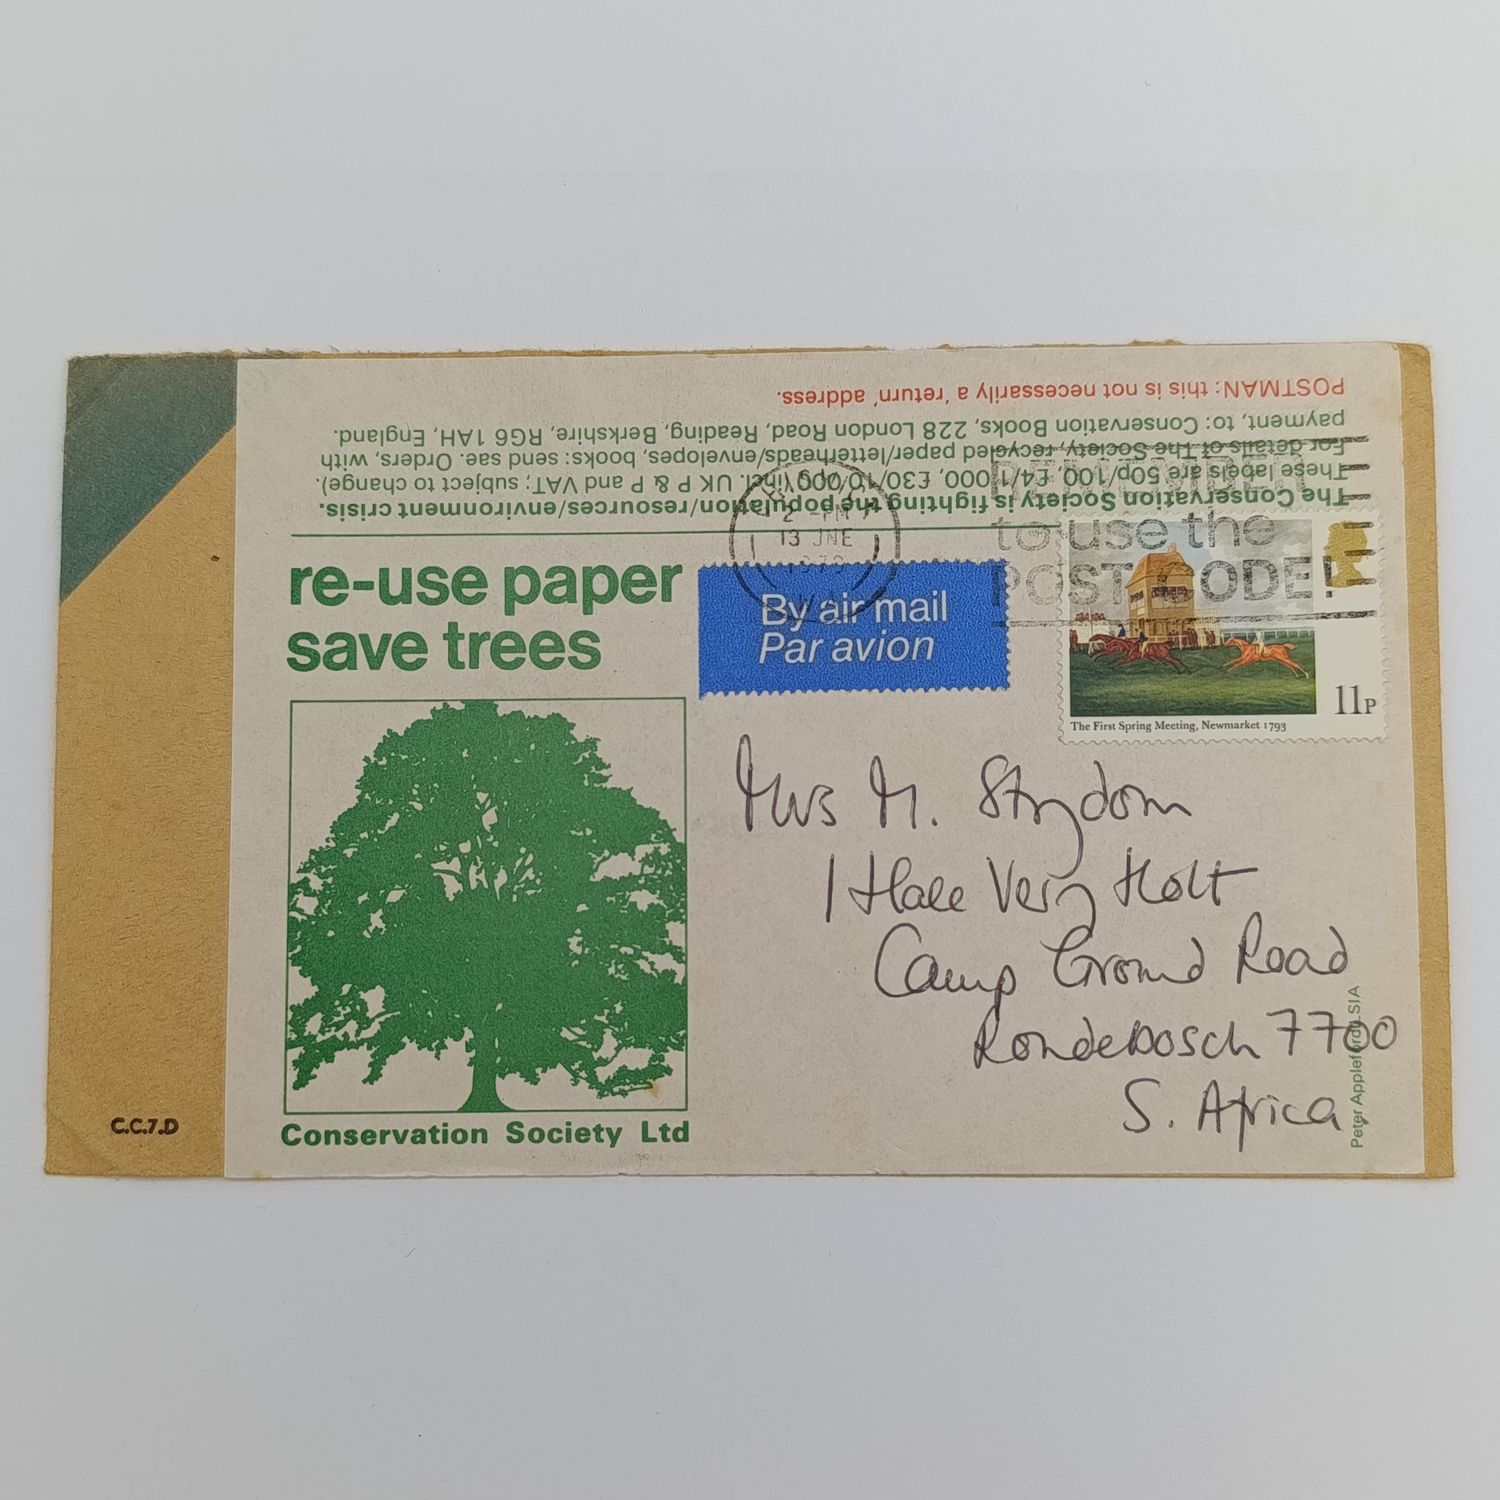 POSTMAN: this is not necessarily a 'return' address.
payment, to: Conservation Books, 228 London Road, Reading, Berkshire, RG6 1AH, England.
For details of The Society, recycled paper/letterheads/envelopes, books: send sae. Orders, with
These labels are 50p/100, £4/1,000, £30/10,000 (incl. UK P & P and VAT; subject to change).
The Conservation Society is fighting the population/resources/environment/crisis.
re-use paper
save trees
2 - PM
13 JNE
REMEMBER
to use the
POST CODE!
By air mail
Par avion
11P
The First Spring Meeting, Newmarket 1793
Mrs M. Strydom
1 Hare Very Holt
Camp Ground Road
Rondebosch 7700
S. Africa
Peter Appleford SIA
C.C.7.D
Conservation Society Ltd